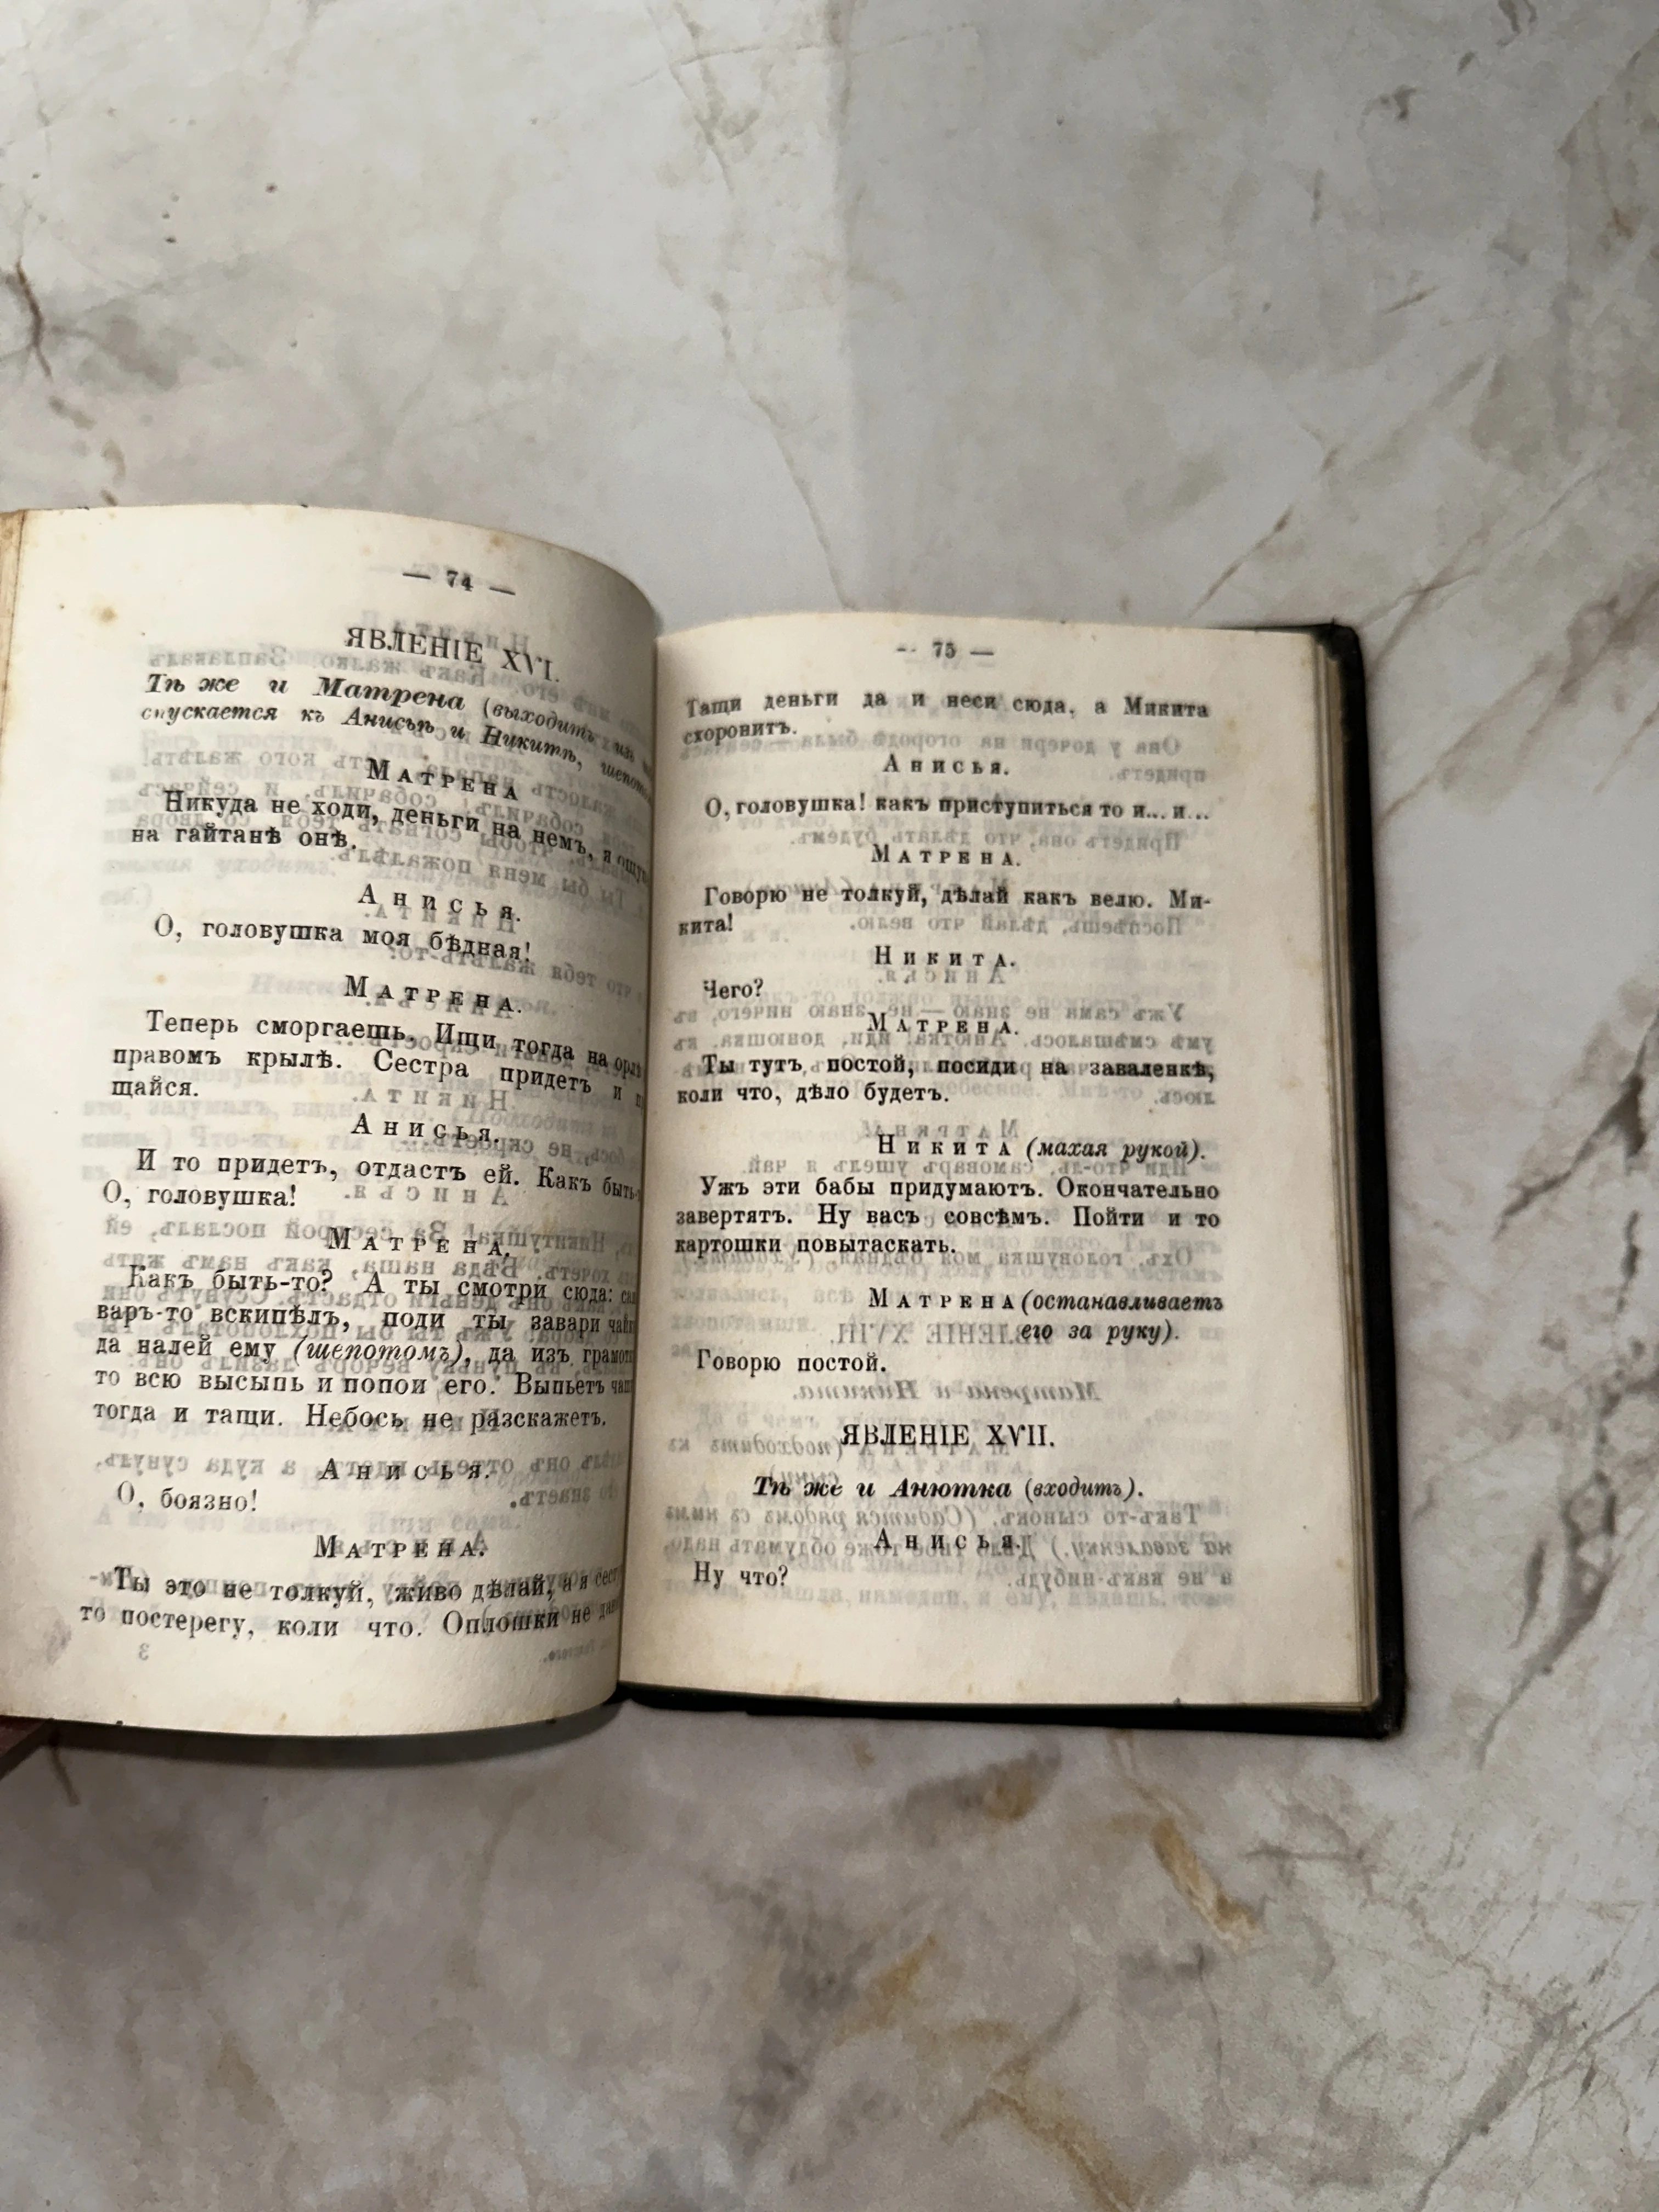 — 74 —
ЯВЛЕНІЕ XVI.
Тѣ же и Матрена (выходитъ изъ
спускается къ Анисьѣ и Никитѣ, шепотомъ
Матрена
Никуда не ходи, деньги на немъ, я ощу
на гайтанѣ онѣ.
Анисья.
О, головушка моя бѣдная!
Матрена.
Теперь сморгаешь. Ищи тогда на орлѣ
правомъ крылѣ. Сестра придетъ и
щайся.
Анисья.
И то придетъ, отдастъ ей. Какъ быть-
О, головушка!
Матрена.
Какъ быть-то? А ты смотри сюда: са
варъ-то вскипѣлъ, поди ты завари чай
да налей ему (шепотомъ), да изъ грамот
то всю высыпь и попои его. Выпьетъ чаш
тогда и тащи. Небось не разскажетъ.
Анисья.
О, боязно!
Матрена.
Ты это не толкуй, живо дѣлай, а я сест
то постерегу, коли что. Оплошки не да
— 75 —
Тащи деньги да и неси сюда, а Микита
схоронитъ.
Анисья.
О, головушка! какъ приступиться то и... и...
Матрена.
Говорю не толкуй, дѣлай какъ велю. Ми-
кита!
Никита.
Чего?
Матрена.
Ты тутъ, постой, посиди на заваленкѣ,
коли что, дѣло будетъ.
Никита (махая рукой).
Ужъ эти бабы придумаютъ. Окончательно
завертятъ. Ну васъ совсѣмъ. Пойти и то
картошки повытаскать.
Матрена (останавливаетъ
его за руку).
Говорю постой.
ЯВЛЕНІЕ XVII.
Тѣ же и Анютка (входитъ).
Анисья.
Ну что?